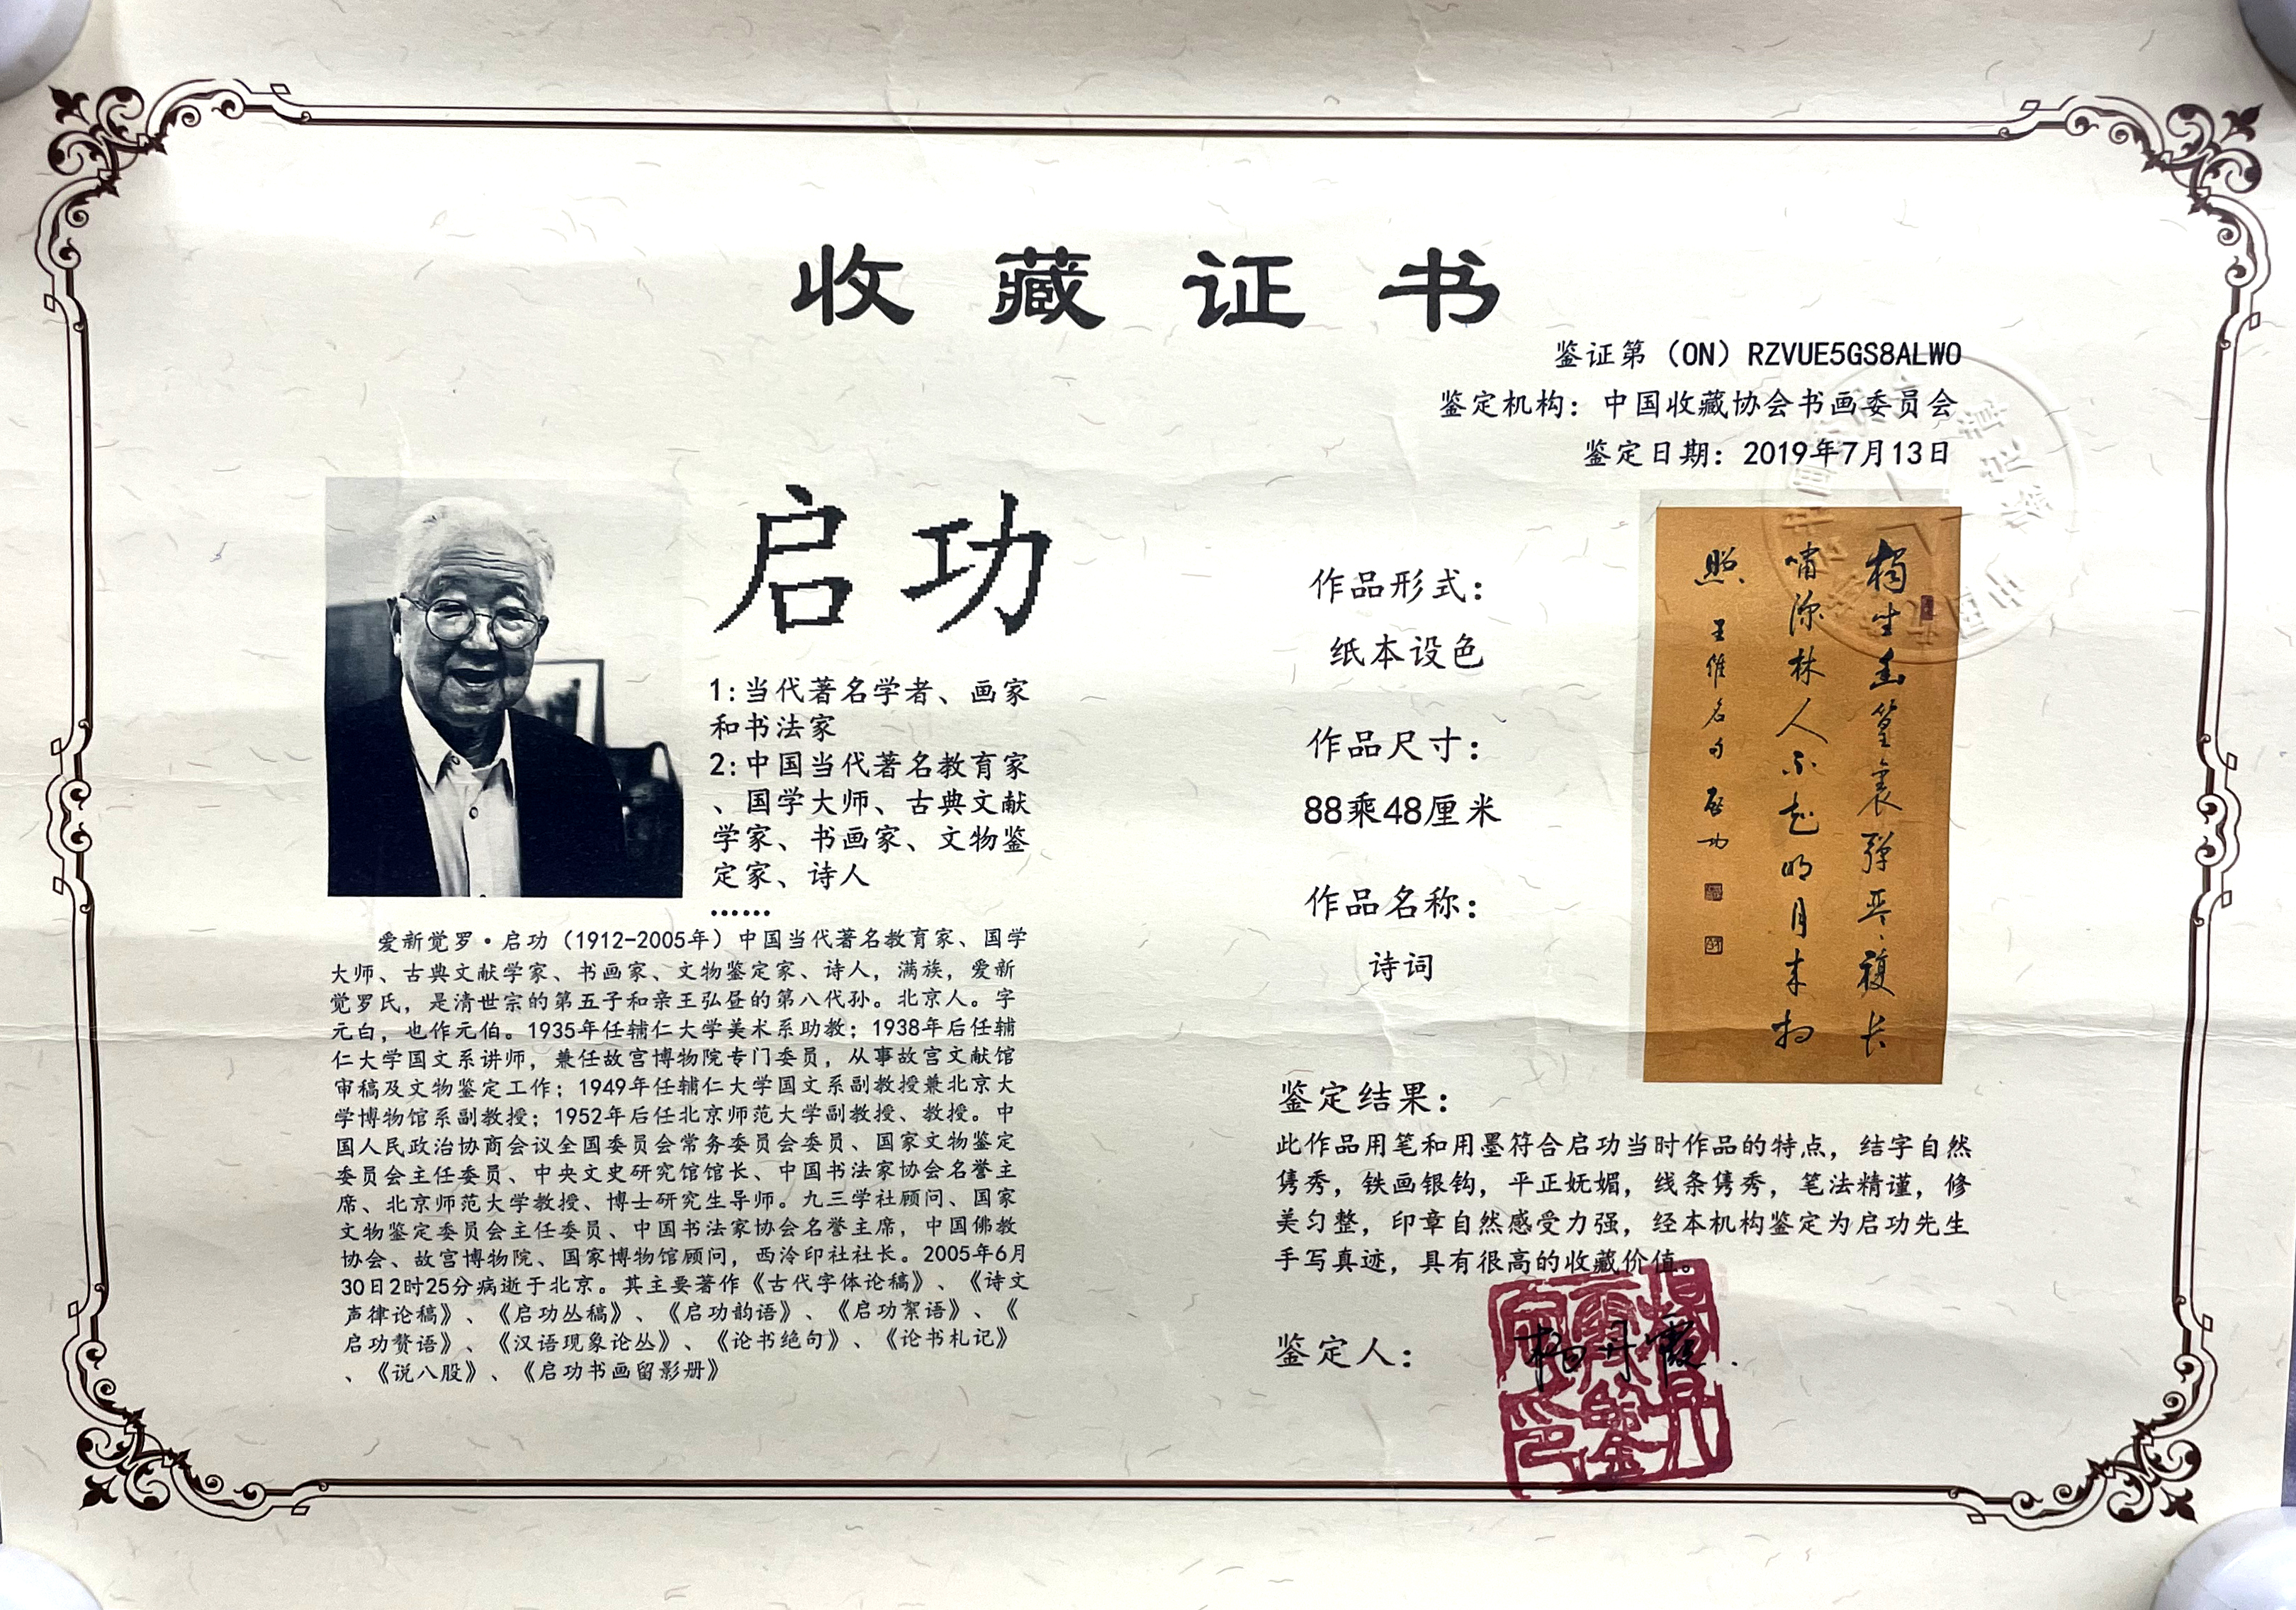 收藏证书
鉴证第（ON）RZVUE5GS8ALWO
鉴定机构：中国收藏协会书画委员会
鉴定日期：2019年7月13日
启功
1:当代著名学者、画家
和书法家
2:中国当代著名教育家
、国学大师、古典文献
学家、书画家、文物鉴
定家、诗人
······
爱新觉罗·启功（1912-2005年）中国当代著名教育家、国学
大师、古典文献学家、书画家、文物鉴定家、诗人，满族，爱新
觉罗氏，是清世宗的第五子和亲王弘昼的第八代孙。北京人。字
元白，也作元伯。1935年任辅仁大学美术系助教；1938年后任辅
仁大学国文系讲师，兼任故宫博物院专门委员，从事故宫文献馆
审稿及文物鉴定工作；1949年任辅仁大学国文系副教授兼北京大
学博物馆系副教授；1952年后任北京师范大学副教授、教授。中
国人民政治协商会议全国委员会常务委员会委员、国家文物鉴定
委员会主任委员、中央文史研究馆馆长、中国书法家协会名誉主
席、北京师范大学教授、博士研究生导师。九三学社顾问、国家
文物鉴定委员会主任委员、中国书法家协会名誉主席，中国佛教
协会、故宫博物院、国家博物馆顾问，西泠印社社长。2005年6月
30日2时25分病逝于北京。其主要著作《古代字体论稿》、《诗文
声律论稿》、《启功丛稿》、《启功韵语》、《启功絮语》、《
启功赘语》、《汉语现象论丛》、《论书绝句》、《论书札记》
、《说八股》、《启功书画留影册》
作品形式：
纸本设色
作品尺寸：
88乘48厘米
作品名称：
诗词
生幽篁裏弹琴復长
啸深林人不知明月来相
照 王维名句 启功
鉴定结果：
此作品用笔和用墨符合启功当时作品的特点，结字自然
隽秀，铁画银钩，平正妩媚，线条隽秀，笔法精谨，修
美匀整，印章自然感受力强，经本机构鉴定为启功先生
手写真迹，具有很高的收藏价值。
鉴定人：杨丹霞